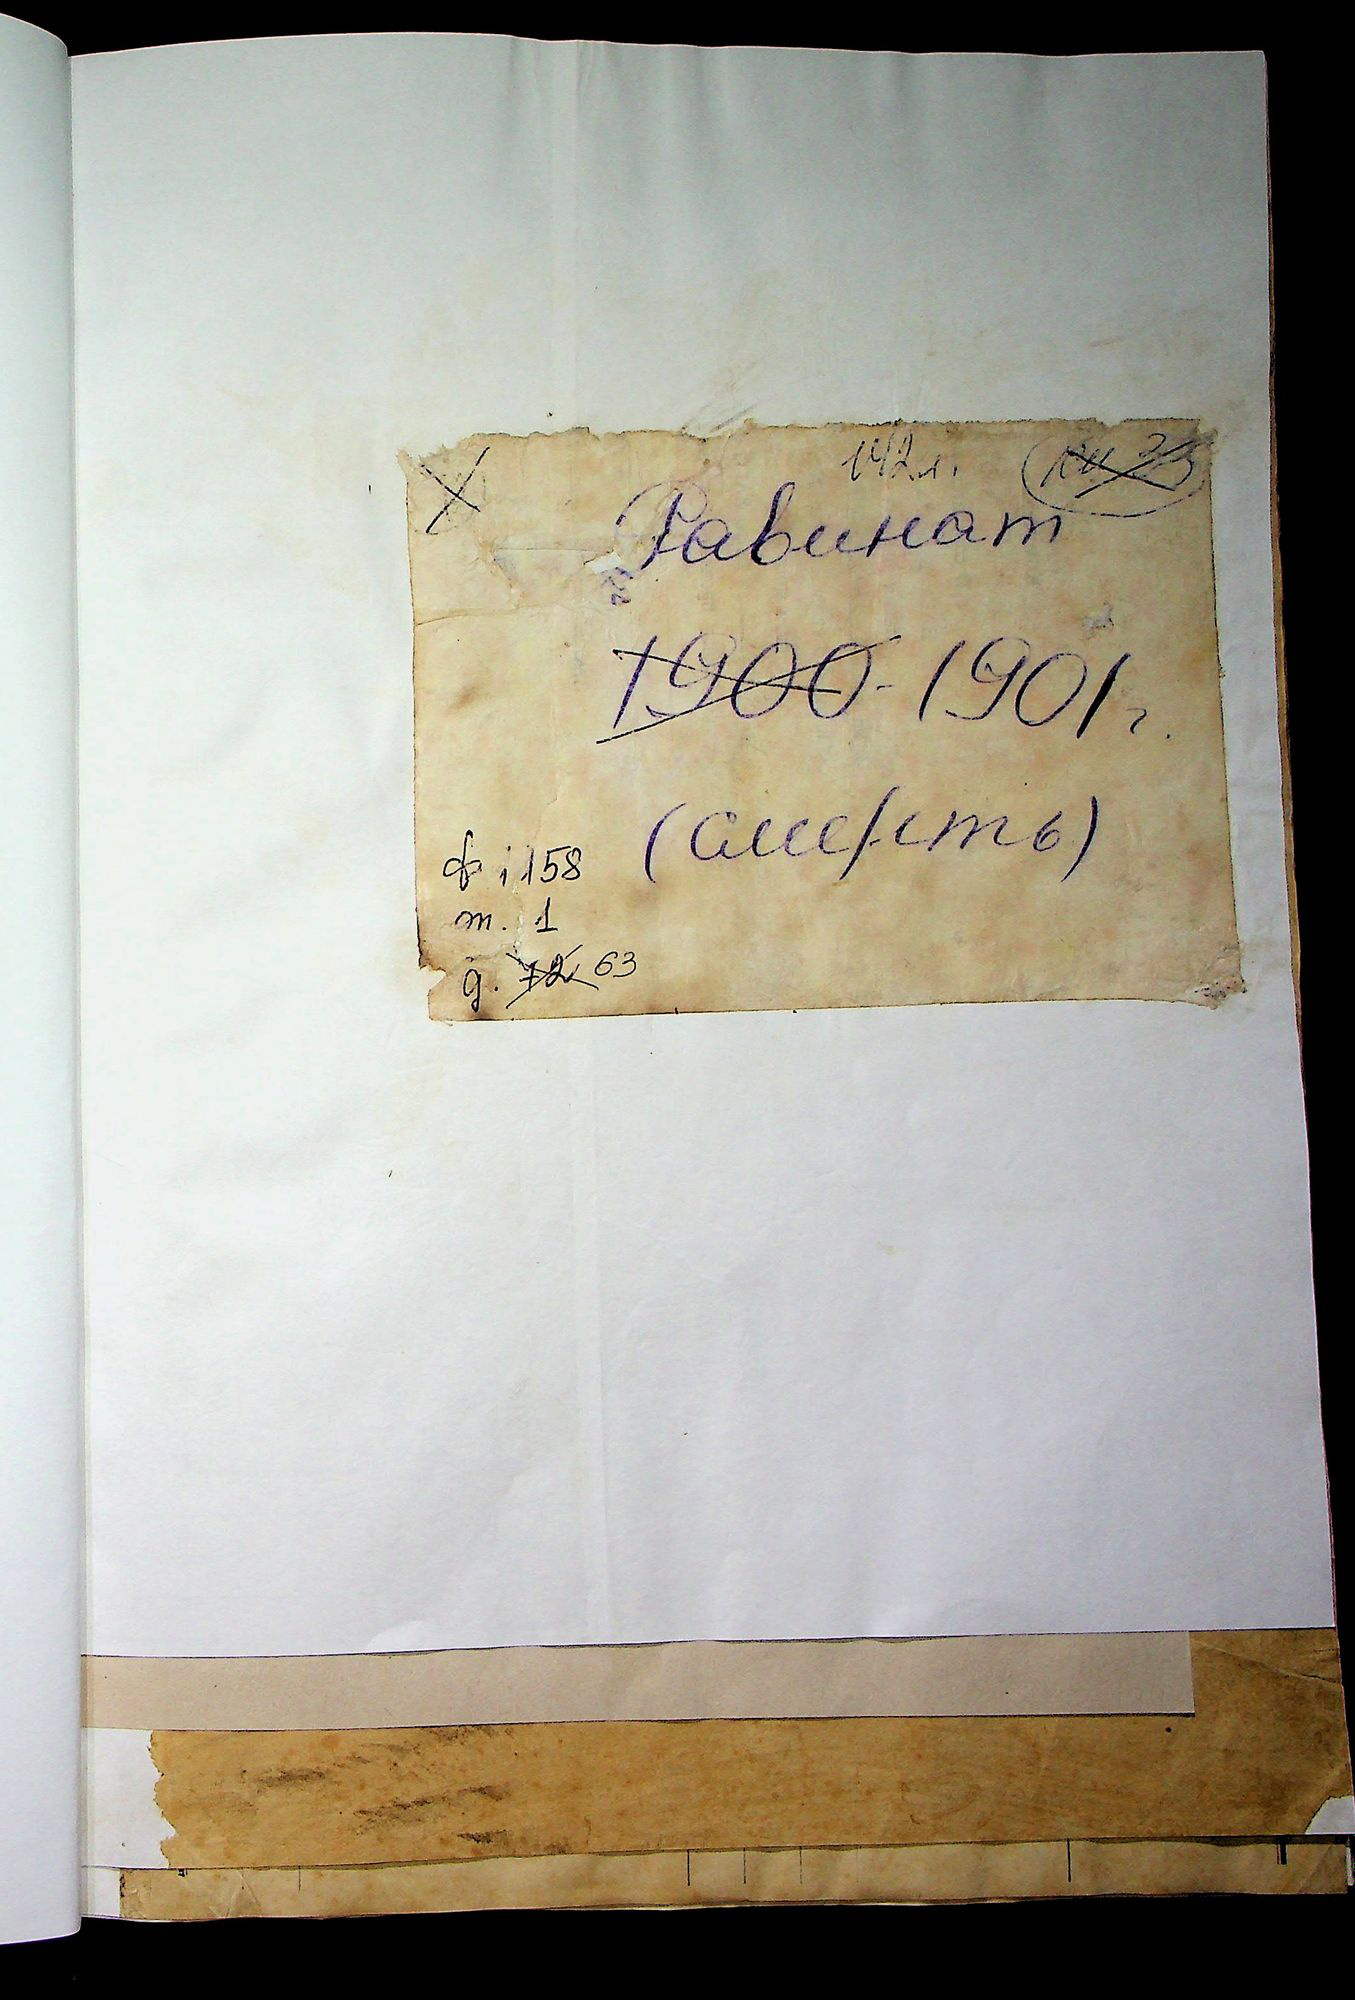 142 л.
Равинат
1900 - 1901 г.
(смерть)
ф. 1158
т. 1
д. 72 63